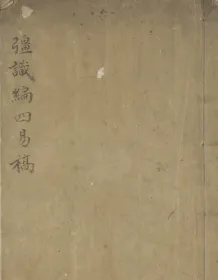 彊識編四易稿